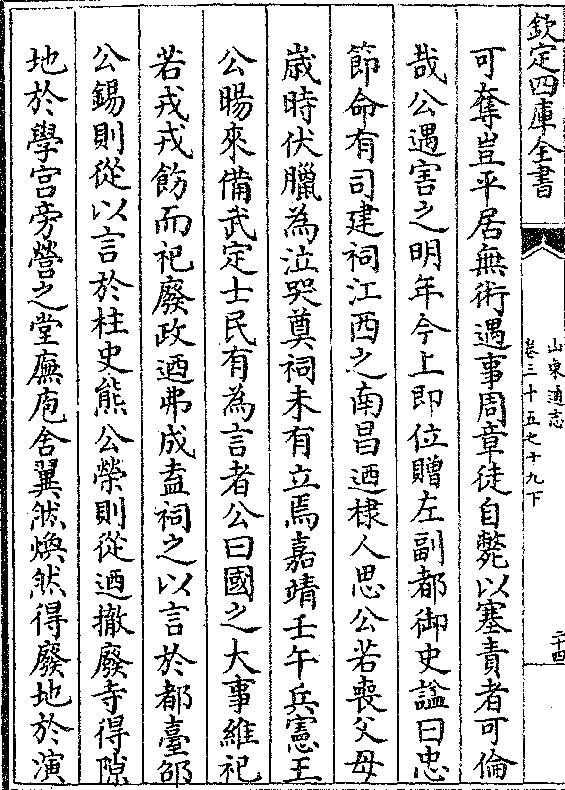 欽定四庫全書
山東通志
卷三十五之十九下
二十四
可奪豈平居無術遇事周章徒自斃以塞責者可倫
哉公遇害之明年今上即位贈左副都御史諡曰忠
節命有司建祠江西之南昌迺棣人思公若喪父母
嵗時伏臘為泣哭奠祠未有立焉嘉靖壬午兵憲王
公暘來備武定士民有為言者公曰國之大事維祀
若戎戎飭而祀廢政迺弗成盍祠之以言於都臺邵
公錫則從以言於柱史熊公榮則從迺撤廢寺得隙
地於學宫旁營之堂廡庖舍翼然煥然得廢地於演